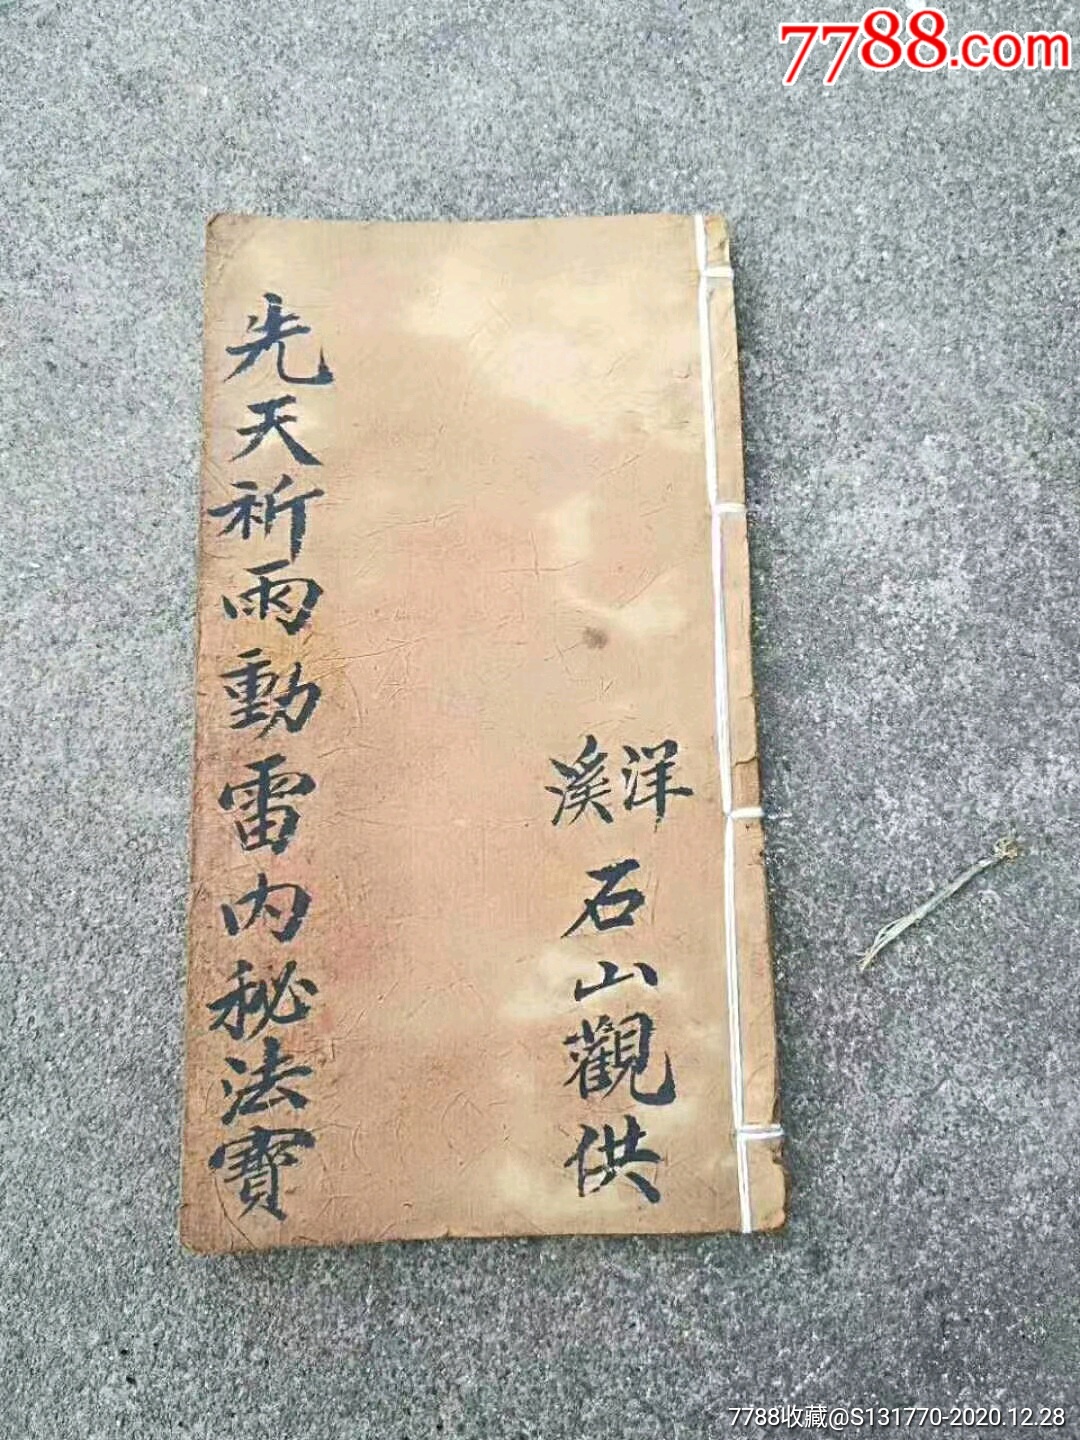 7788.com
先天祈雨動雷內秘法寶
洋溪
石山觀供
7788收藏@S131770-2020.12.28